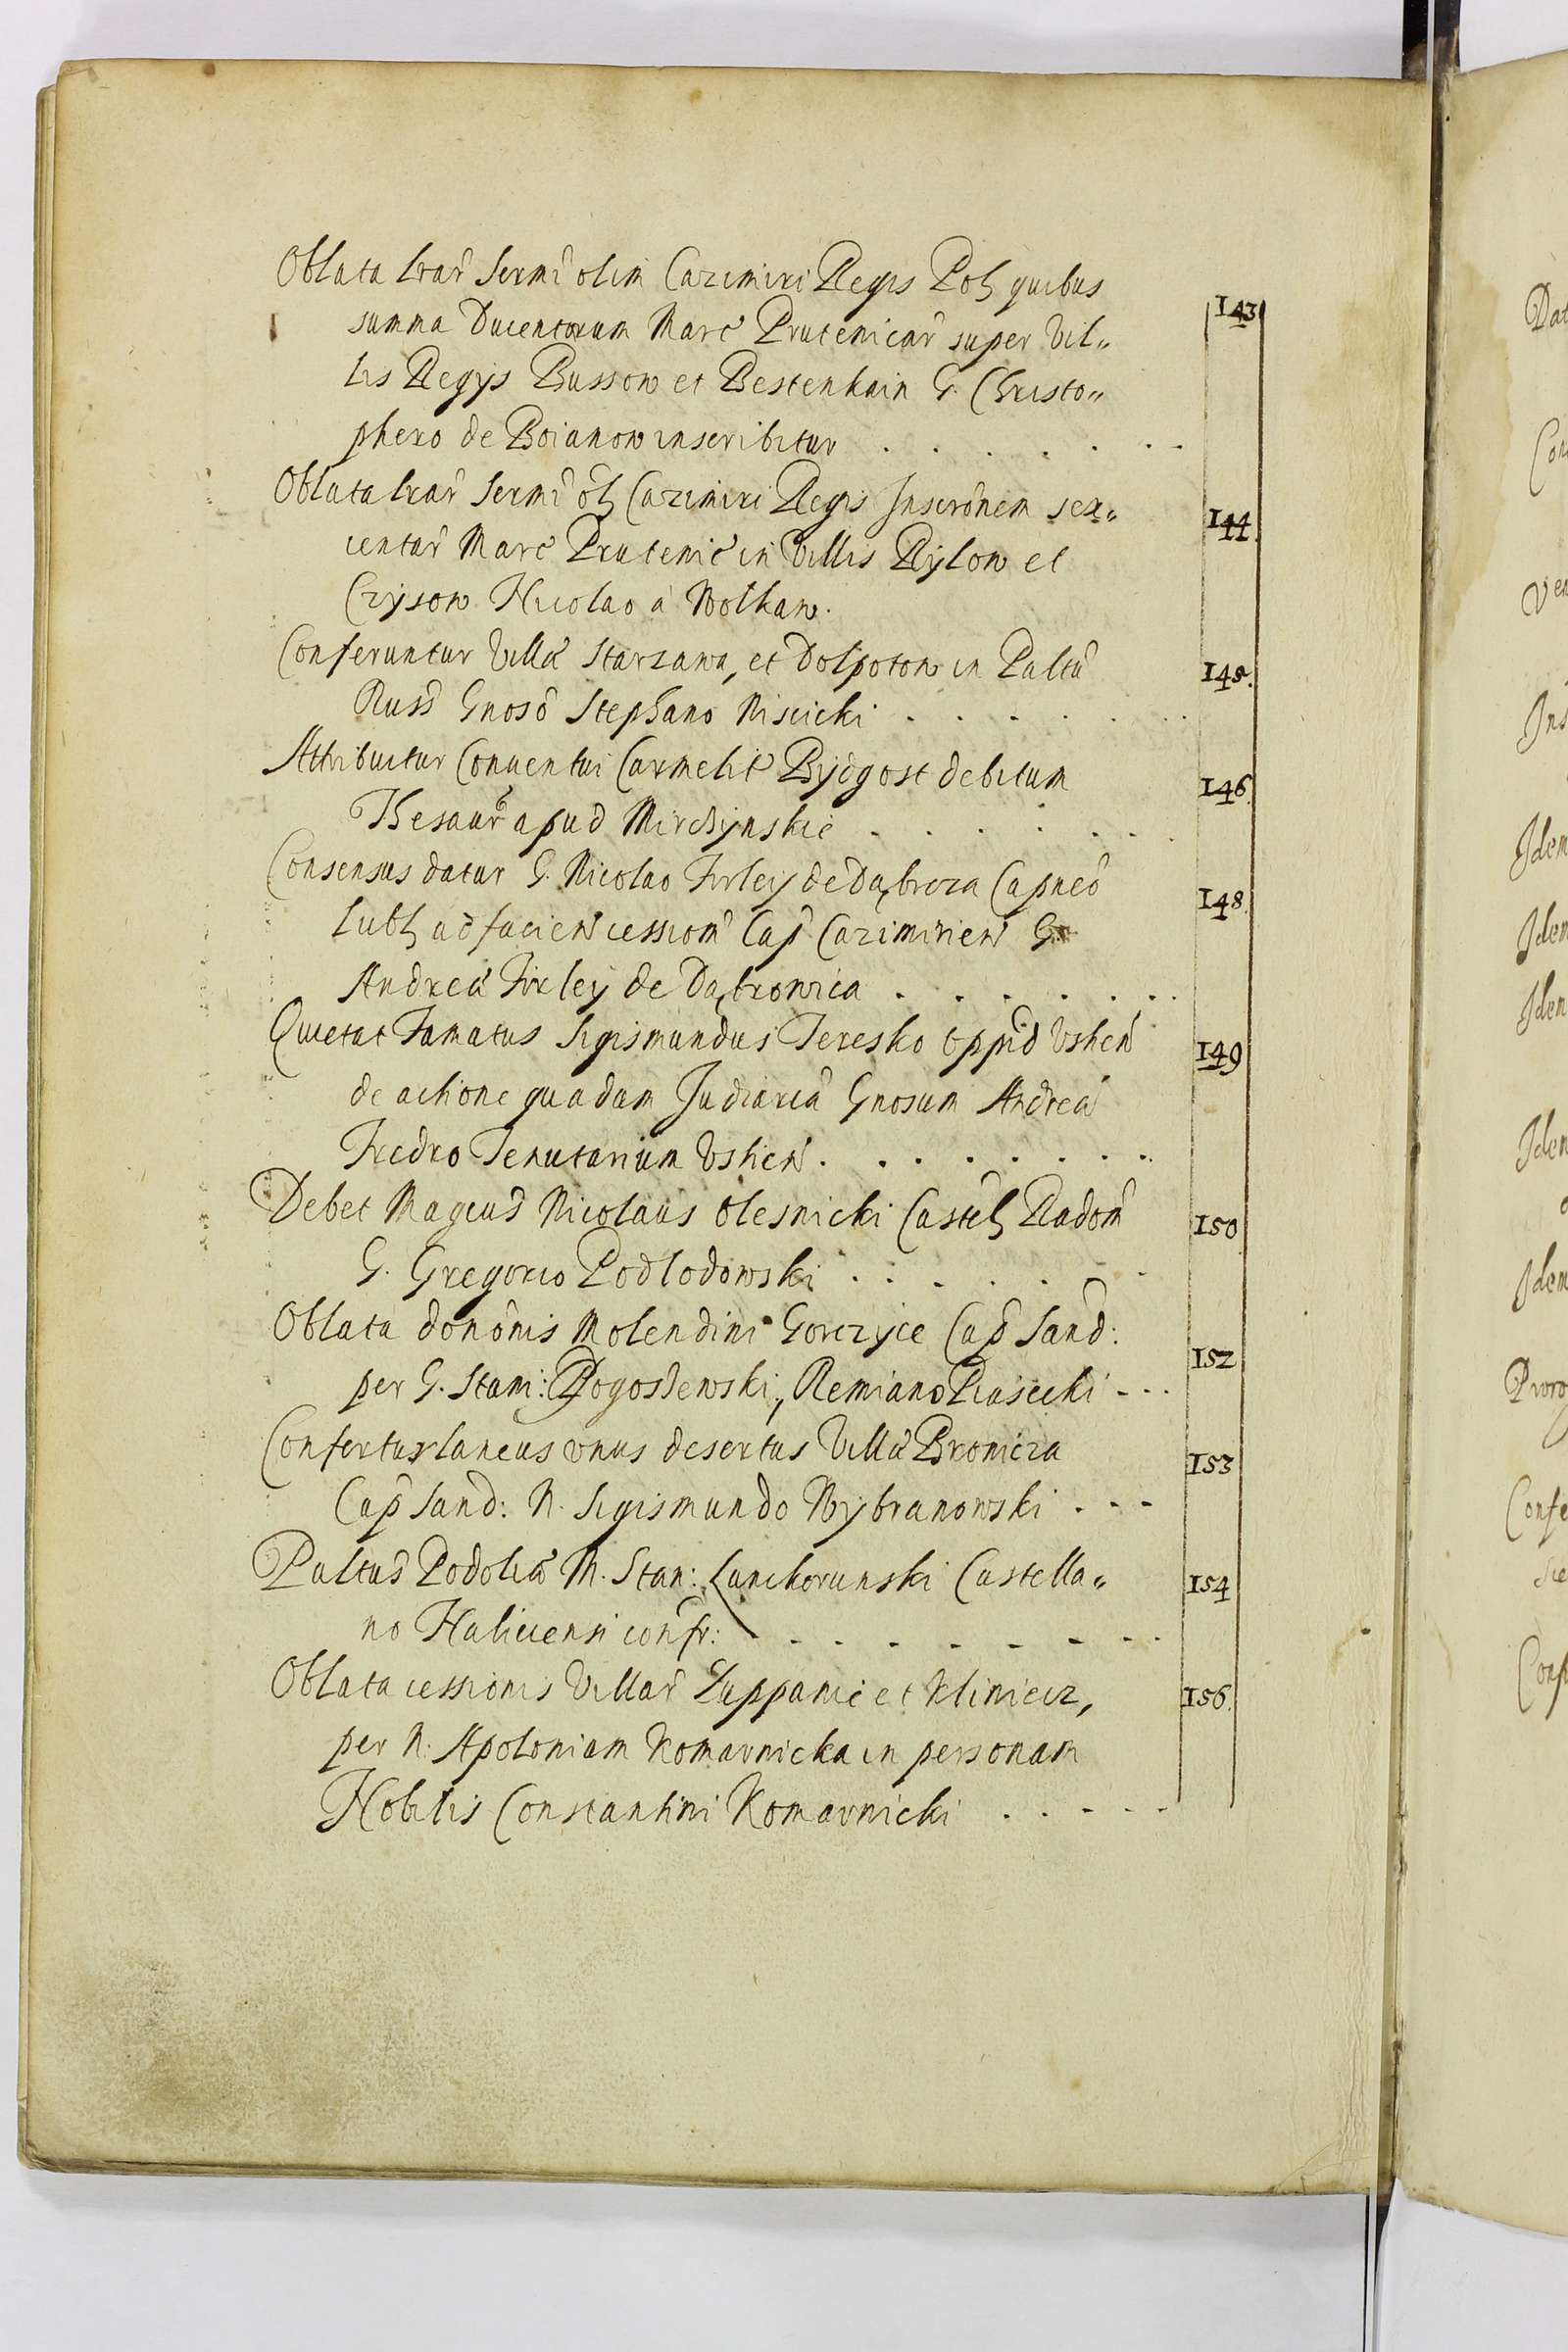 Oblata lrar̃ Sermi olim Cazimiri Regis Pol quibus
summa Ducentorum Marc̃ Prutenicar̃ super Vil„ 143
lis Regijs Bussow et Bestenhain G. Christo„
phero de Boianow inscribitur . . . . . . .
Oblata lrar̃ Sermi ol Cazimiri Regis Inscrōnem sex„ 144.
centar̃ Marc̃ Prutenic̃ in Villis Rylow et
Czysow Nicolao à Wolkaw.
Conferuntur Villæ Starzawa, et Dolpotow in Paltũ 145.
Russ̃ Gnosõ Stephano Niscicki . . . . . .
Attribuitur Conuentui Carmelit̃ Bydgost debitum 146.
Thesaur̃ apud Mirchynskie . . . . . . .
Consensus datur G. Nicolao Firley de Dąbroza Capneõ 148.
Lubl ad facien̄ cessiom̃ Cap̃ Cazimirien̄ G
Andreæ Firley de Dąbrowica . . . . . . .
Quietat Famatus Sigismundus Teresko oppid̃ Vshen̄ 149
de actione quadam Judiariã Gnosum Andreã
Fredro Tenutarium Vshen̄ . . . . . . . .
Debet Magcus̃ Nicolaus Olesnicki Castel Radom̃ 150
G. Gregorio Podlodowski . . . . . .
Oblata donōnis Molendini Gorczyce Cap̃ Sand̃: 152
per G. Stani: Pogoszewski, Remiano Piasecki - - .
Confertur laneus vnus desertus Villæ Bronicza 153
Cap̃ Sand: N. Sigismundo Wybranowski . - -
Paltus̃ Podoliæ M. Stan: Lanckorunski Castella„ 154
no Haliciensi confr: - . - . - - - - .
Oblata cessionis Villar̃ Łuppanie et Kliniecz, 156.
per N. Apoloniam Komarnicka in personam
Nobilis Constantini Komarnicki . . . . .